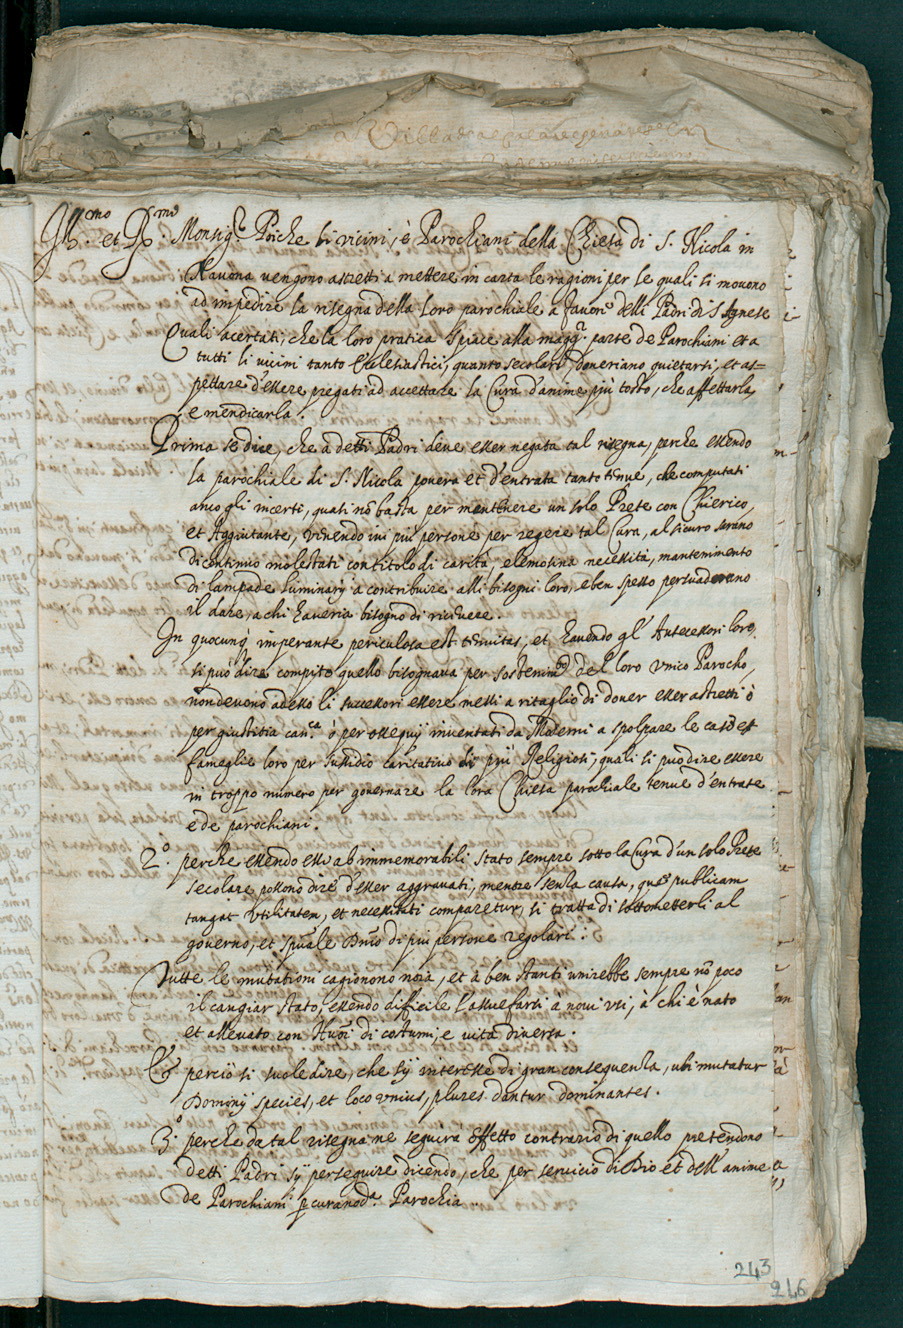 Ill.mo et R.mo Monsig.r Poiche li vicini, è Parochiani della Chiesa di S. Nicola in
Navona vengono astretti a mettere in carta le ragioni per le quali si movono
ad impedire la risegna della loro parochiale a favore delli Padri di S Agnese
Quali acertati, che la loro pratica spiace alla magg.r parte de Parochiani et a
tutti li vicini tanto Ecclesiastici, quanto secolari, doveriano quietarsi, et as-
pettare d'essere pregati ad accettare la Cura d'anime più tosto, che affettarla,
e mendicarla.
Prima se dice, che à detti Padri deve esser negata tal risegna, perche essendo
la parochiale di S. Nicola povera et d'entrata tanto tenue, che computati
anco gli incerti, quali nõ basta per mantenere un solo Prete con Chierico,
et Aggiutante, venendo ivi più persone per regere tal Cura, al sicuro serano
di continuo molestati con titolo di carità, elemosina necessità, mantenimento
di lampade luminarij a contribuire alli bisogni loro, e ben spesso persuaderano
il dare, a chi haveria bisogno di ricevere.
In quocunq imperante periculosa est tenuitas, et havendo gl' Antecessori loro,
si può dire compito quello bisognava per sostenim.to del loro unico Parocho,
nõ devono adesso li successori essere messi a ritaglio di dover esser astretti ò
per giustitia can.ca ò per ossequij inventati da Moderni a spolpare le case et
fameglie loro per sussidio caritativo di più Religiosi, quali si può dire essere
in troppo numero per governare la lora Chiesa parochiale tenue d'entrate
e de parochiani.
2.o perche essendo essi ab immemorabili stato sempre sotto la Cura d'un solo Prete
secolare possono dire d'esser aggravati, mentre senza causa, quae publicam
tangat utilitatem, et necessitati comparetur, si tratta di sottometterli al
governo, et spũale Dnĩo di più persone regolari.
Tutte le mutationi cagionono noia, et à ben stanti unirebbe sempre nõ poco
il cangiar stato, essendo difficile l'assuefarsi a novi usi, à chi è nato
et allevato con Huoĩ di costumi, e vita diversa.
Et perciò si suole dire, che sij interesse di gran consequenza, ubi mutatur
Dominij species, et loco unius, plures dantur dominantes.
3.o perche da tal risegna ne seguira effetto contrario di quello pretendono
detti Padri sij perseguire dicendo, che per servicio di Dio et dell' anime
de Parochiani p curano d.a Parochia.
243
246